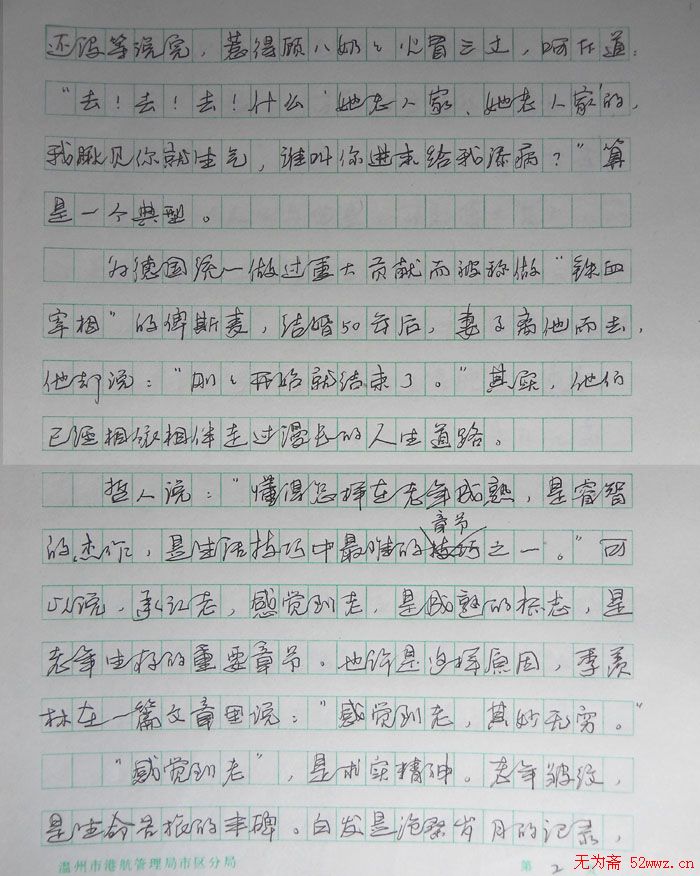 还没等说完，惹得顾八奶々火冒三丈，呵斥道：
“去！去！去！什么‘她老人家、她老人家’的，
我瞅见你就生气，谁叫你进来给我添病？”算
是一个典型。
为德国统一做过重大贡献而被称做“铁血
宰相”的俾斯麦，结婚50年后，妻子离他而去，
他却说：“刚々开始就结束了。”其实，他们
已经相依相伴走过漫长的人生道路。
哲人说：“懂得怎样在老年成熟，是睿智
章节
的杰作，是生活技巧中最难的之一。”可
以说，承认老，感觉到老，是成熟的标志，是
老年生存的重要章节。也许是这样原因，季羡
林在一篇文章里说：“感觉到老，其妙无穷。”
“感觉到老”，是求实精神。老年皱纹，
是生命苦旅的丰碑。白发是沧桑岁月的记录，
温州市港航管理局市区分局 第 2
无为斋 52wwz.cn